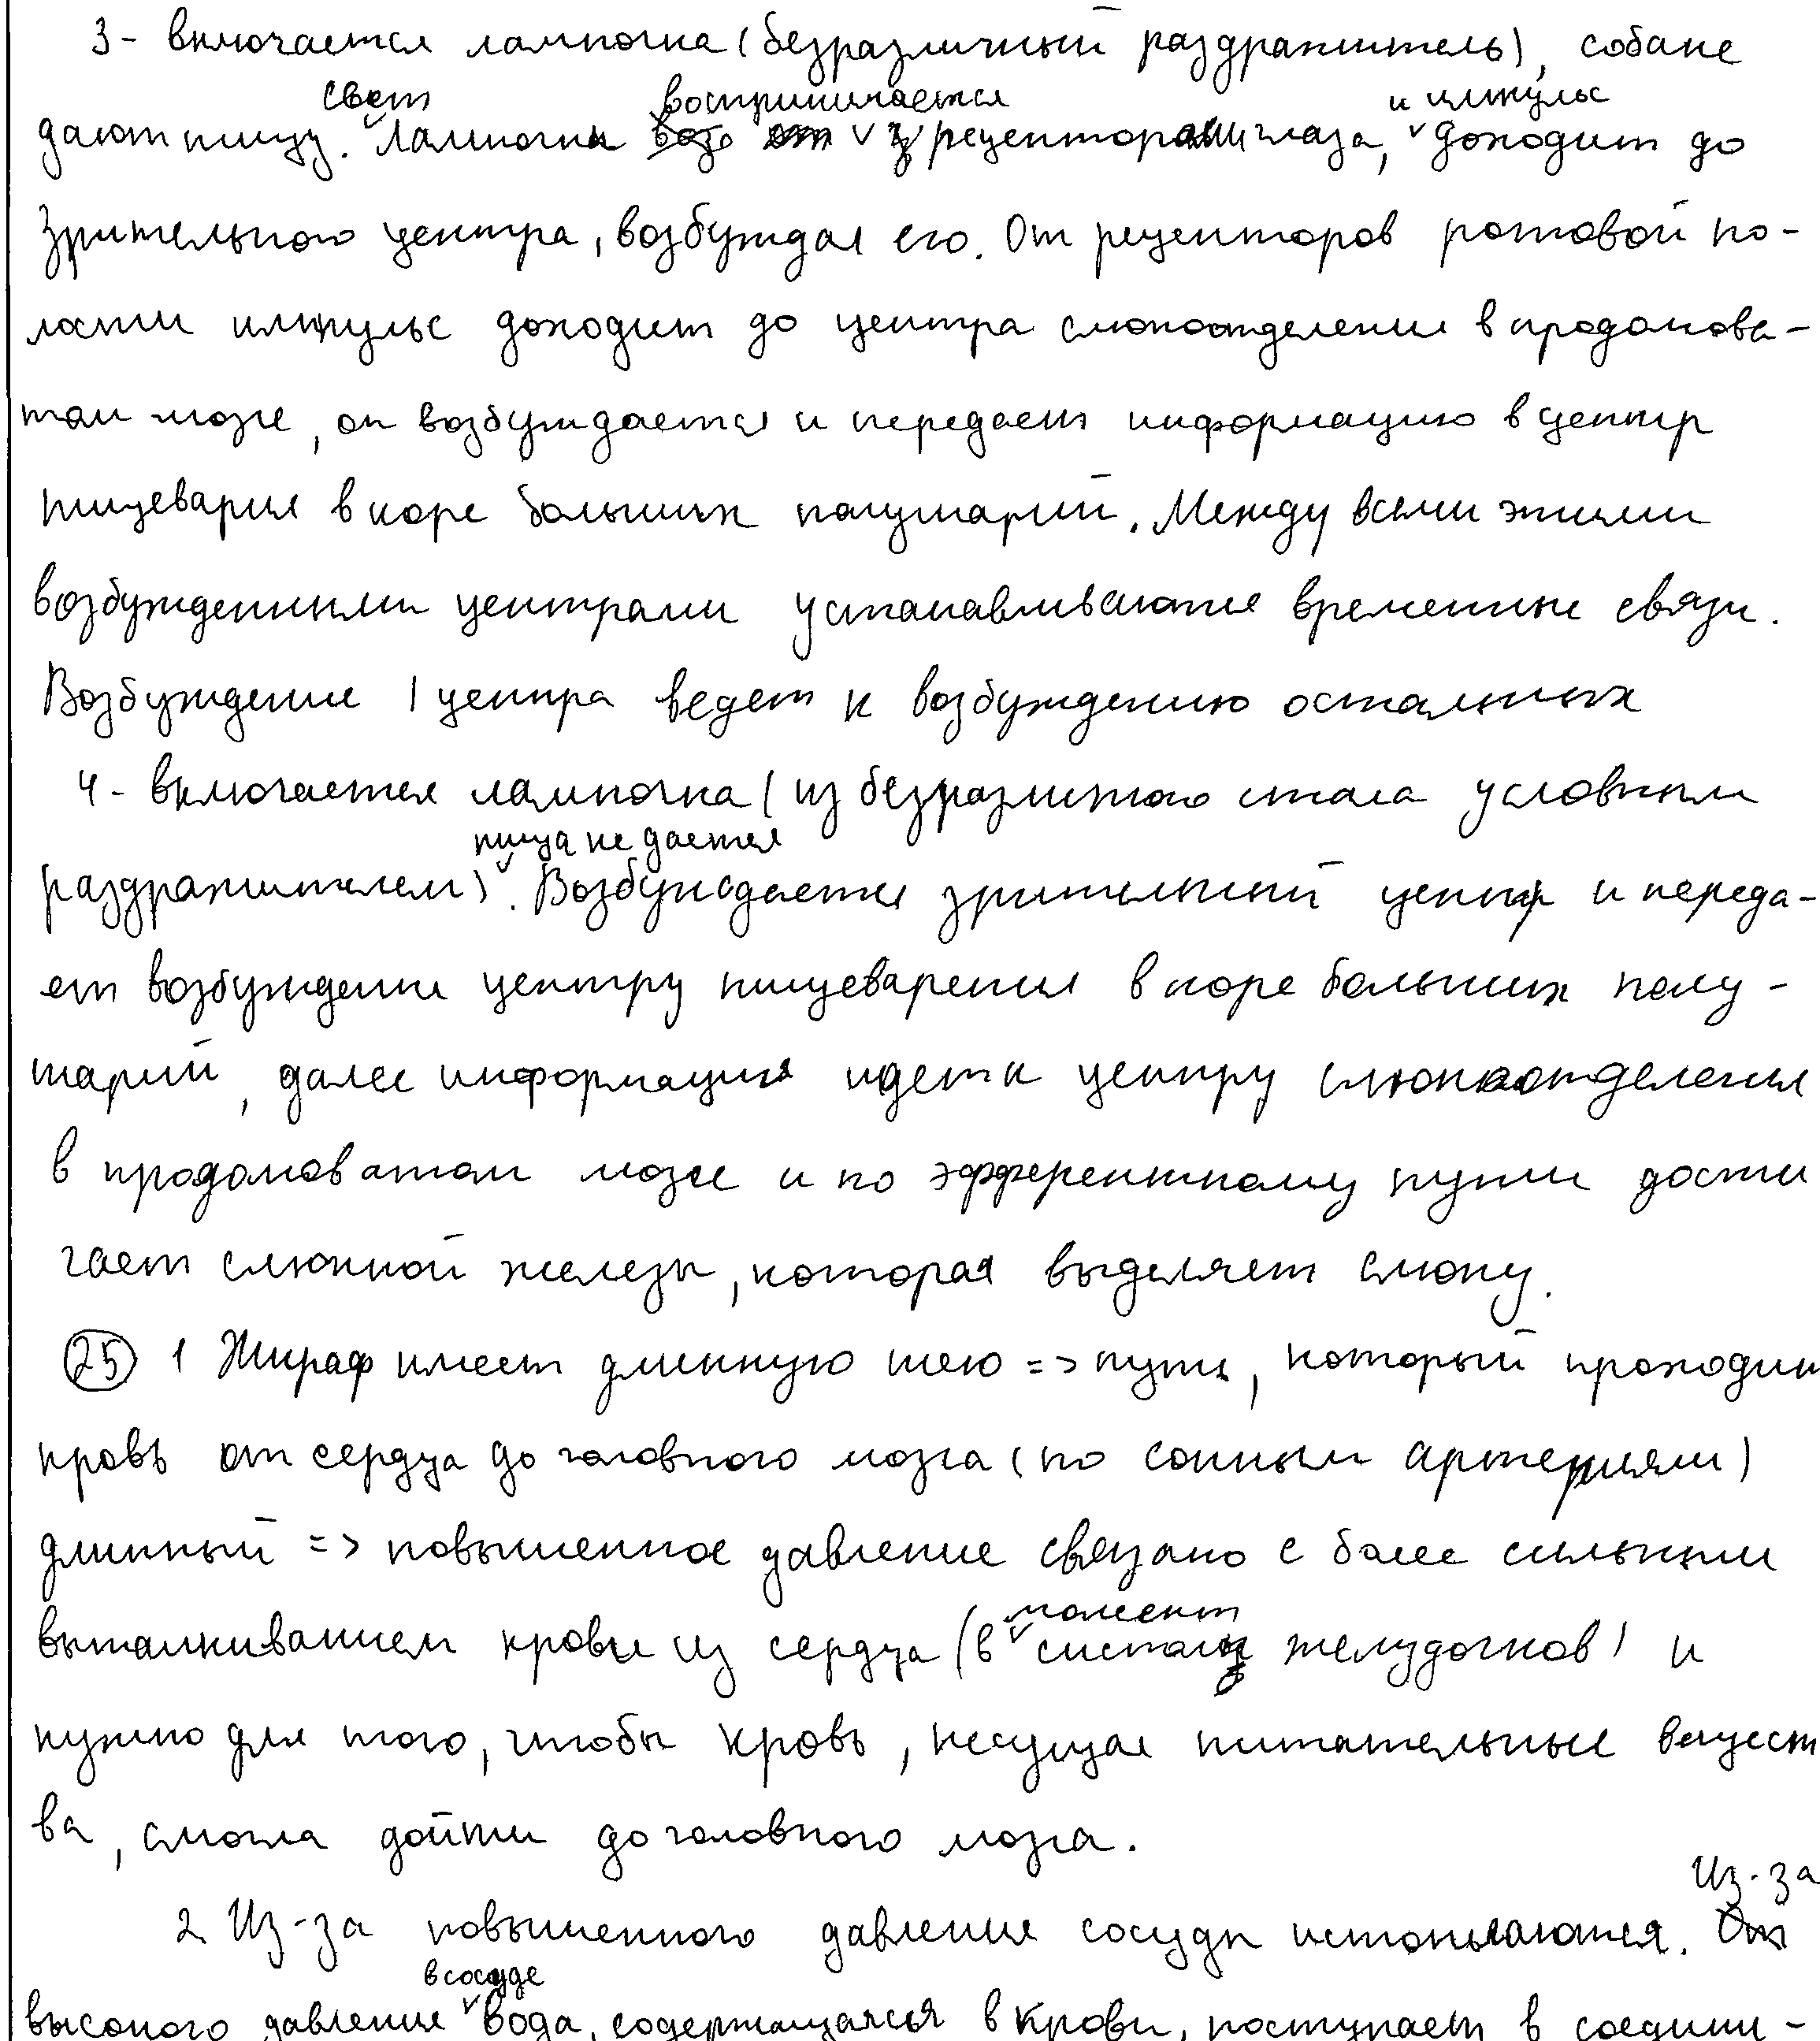 3 - включается лампочка (безразличный раздражитель), собаке
свет воспринимается и импульс
дают пищу. Лампочки рецепторами глаза, доходит до
зрительного центра, возбуждая его. От рецепторов ротовой по-
лости импульс доходит до центра слюноотделения в продолгова-
том мозге, он возбуждается и передает информацию в центр
пищевария в коре больших полушарий. Между всеми этими
возбужденными центрами устанавливаются временные связи.
Возбуждение 1 центра ведет к возбуждению остальных
4 - включается лампочка (из безразличного стала условным
пища не дается
раздражителем). Возбуждается зрительный центр и переда-
ет возбуждение центру пищеварения в коре больших полу-
шарий, далее информация идет к центру слюноотделения
в продолговатом мозге и по эфферентному пути дости
гает слюнной железы, которая выделяет слюну.
25 1 Жираф имеет длинную шею => путь, который проходит
кровь от сердца до головного мозга (по сонным артериям)
длинный => повышенное давление связано с более сильным
момент
выталкиванием крови из сердца (в систолы желудочков) и
нужно для того, чтобы кровь, несущая питательные вещест
ва, смогла дойти до головного мозга.
Из-за
2 Из-за повышенного давления сосуды истончаются.
в сосуде
высокого давления вода, содержащаяся в крови, поступает в соедини-